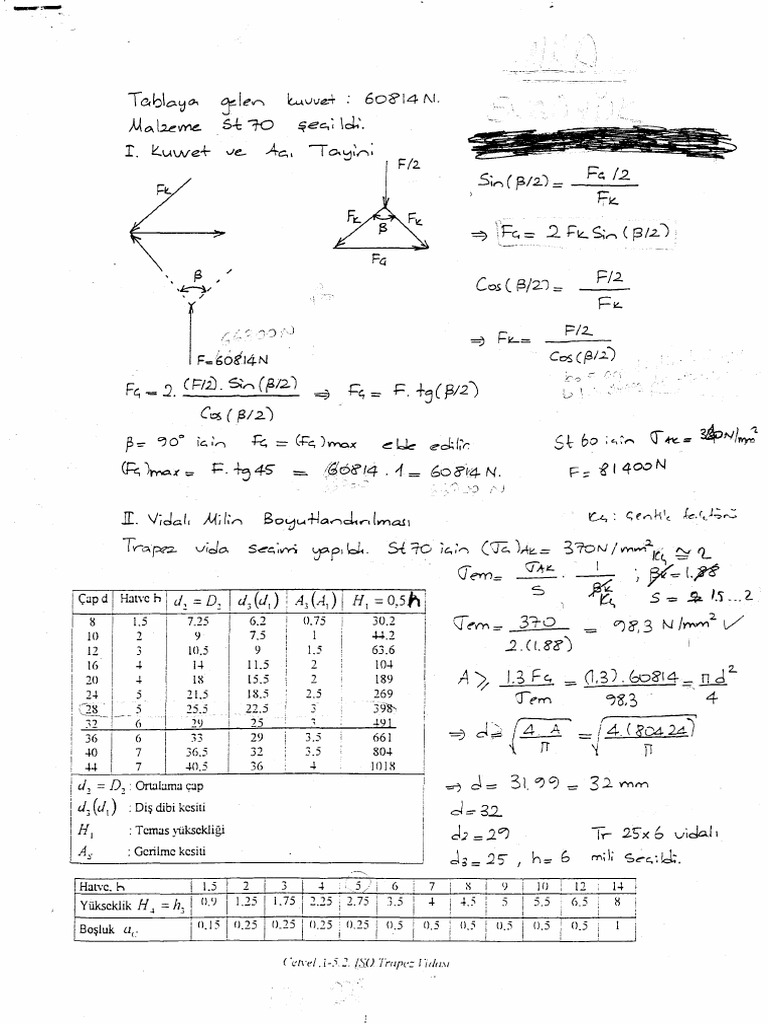 Tablaya gelen kuvvet : 60814 N.
Malzeme St 70 seçildi.
I. Kuvvet ve Açı Tayini
F/2
FK
FK
β
FK
FG
β
F=60814N
Sin(β/2) = FG/2 / FK
⇒ FG = 2 FK Sin(β/2)
Cos(β/2) = F/2 / FK
⇒ FK = F/2 / Cos(β/2)
FG = 2. (F/2). Sin(β/2) / Cos(β/2) ⇒ FG = F. tg(β/2)
β = 90° için FG = (FG)max elde edilir
(FG)max = F. tg45 = 60814 . 1 = 60814 N.
St 60 için σAK = N/mm²
F = 81400N
II. Vidalı Milin Boyutlandırılması
KG : Çentik faktörü
Trapez vida seçimi yapıldı. St 70 için (σG)AK = 370 N/mm²
KG ≅ 2
σem = σAK / S . 1 / βK KG ; βK = 1.88
S = 1.5...2
σem = 370 / 2.(1.88) = 98,3 N/mm² ✓
A ≥ 1.3 FG / σem = (1.3). 60814 / 98.3 = π d² / 4
⇒ d ≥ √ 4 . A / π = √ 4.(804.24) / π
⇒ d = 31,99 = 32 mm
d=32
d2=29 Tr 25x6 vidalı
d3=25 , h=6 mili seçildi.
Çap d | Hatve h | d2 = D2 | d3(d1) | A3(A1) | H1 = 0,5h
8 | 1.5 | 7.25 | 6.2 | 0.75 | 30.2
10 | 2 | 9 | 7.5 | 1 | 44.2
12 | 3 | 10.5 | 9 | 1.5 | 63.6
16 | 4 | 14 | 11.5 | 2 | 104
20 | 4 | 18 | 15.5 | 2 | 189
24 | 5 | 21.5 | 18.5 | 2.5 | 269
28 | 5 | 25.5 | 22.5 | 3 | 398
32 | 6 | 29 | 25 | 3 | 491
36 | 6 | 33 | 29 | 3.5 | 661
40 | 7 | 36.5 | 32 | 3.5 | 804
44 | 7 | 40.5 | 36 | 4 | 1018
d2 = D2 : Ortalama çap
d3(d1) : Diş dibi kesiti
H1 : Temas yüksekliği
AS : Gerilme kesiti
Hatve, h | 1.5 | 2 | 3 | 4 | 5 | 6 | 7 | 8 | 9 | 10 | 12 | 14
Yükseklik H4 = h3 | 0.9 | 1.25 | 1.75 | 2.25 | 2.75 | 3.5 | 4 | 4.5 | 5 | 5.5 | 6.5 | 8
Boşluk aC | 0.15 | 0.25 | 0.25 | 0.25 | 0.25 | 0.5 | 0.5 | 0.5 | 0.5 | 0.5 | 0.5 | 1
Cetvel A-5.2. ISO Trapez Vidası